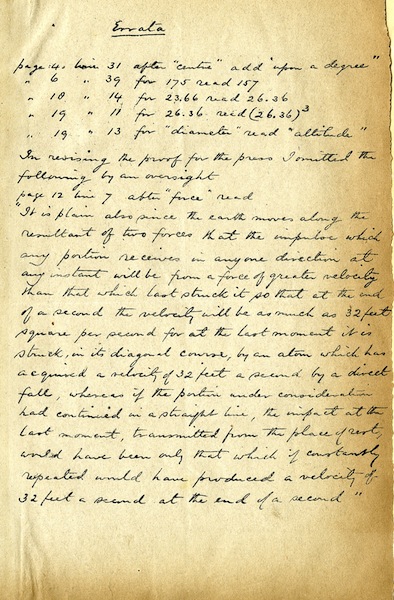 Errata
page 4. line 31 after "centre" add "upon a degree"
" 6 " 39 for 175 read 157
" 18 " 14 for 23.66 read 26.36
" 19 " 11 for 26.36 read (26.36)³
" 19 " 13 for "diameter" read "altitude"
In revising the proof for the press I omitted the
following by an oversight
"page 12 line 7 after "force" read
"It is plain also since the earth moves along the
resultant of two forces that the impulse which
any portion receives in anyone direction at
any instant will be from a force of greater velocity
than that which last struck it so that at the end
of a second the velocity will be as much as 32 feet
square per second for at the last moment it is
struck, in its diagonal course, by an atom which has
acquired a velocity of 32 feet a second by a direct
fall, whereas if the portion under consideration
had continued in a straight line, the impact at the
last moment, transmitted from the place of rest,
would have been only that which if constantly
repeated would have produced a velocity of
32 feet a second at the end of a second "